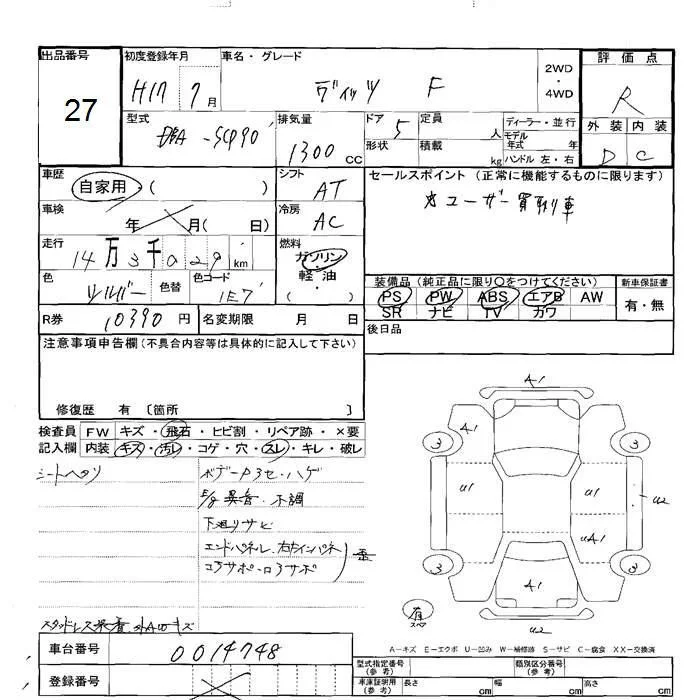 出品番号 27
初度登録年月 H17 7月
車名・グレード ヴィッツ F
2WD・4WD
評価点 R
型式 DBA-SCP90
排気量 1300CC
ドア 5
形状
定員 人
積載 kg
ディーラー・並行
モデル年式 年式
ハンドル 左・右
外装 内装
D C
車歴 自家用・( )
シフト AT
セールスポイント (正常に機能するものに限ります)
☆ユーザー買取り車
車検 年 月( 日)
冷房 AC
走行 14万3千029km
燃料 ガソリン・軽油 ( )
色 シルバー
色替
色コード 1E7
装備品 (純正品に限り○をつけてください)
PS PW ABS エアB AW
SR ナビ TV カワ
新車保証書
有・無
R券 10390円
名変期限 月 日
後日品
注意事項申告欄(不具合内容等は具体的に記入して下さい)
修復歴 有 〔箇所 〕
検査員記入欄
FW キズ・飛石・ヒビ割・リペア跡・×要
内装 キズ・汚レ・コゲ・穴・スレ・キレ・破レ
シートヘタリ
E/g異音・不調
下廻りサビ
エンドパネル、右左インパネ
スタッドレス
A1
A1 A1
3 3
U1 U1 U2
UA1
3 3
A1
有 スペア
U2
A-キズ E-エクボ U-凹み W-補修跡 S-サビ C-腐食 XX-交換済
車台番号 0014748
登録番号
型式指定番号(参考)
類別区分番号(参考)
車庫証明用(参考) 長さ cm 幅 cm 高さ cm